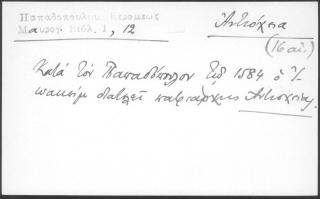 Παπαδοπούλου Κεραμέως
Μαυρογ. Βιβλ. 1, 12
Ἀντιόχεια
(16 αἰ.)
Κατὰ τὸν Παπαδόπουλον τῷ 1584 ὁ Ἰ-
ωακεὶμ διατελεῖ πατριάρχης Ἀντιοχείας.